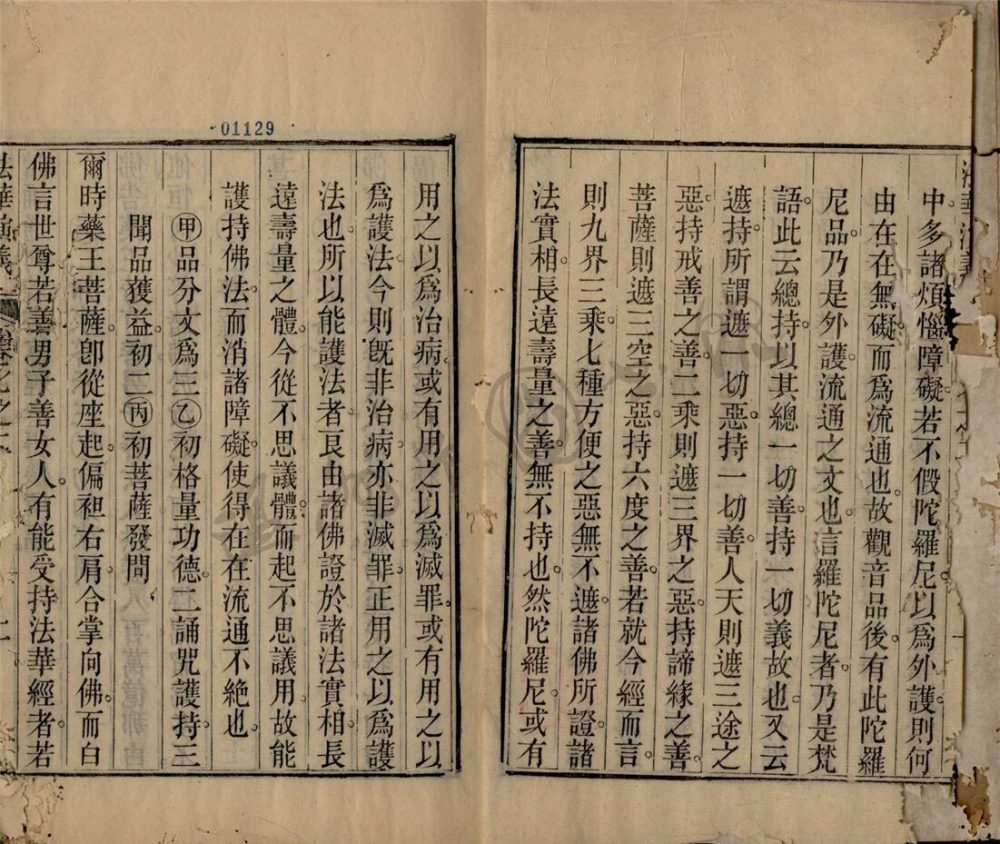 中多諸煩惱障礙若不假陀羅尼以爲外護則何
由在在無礙而爲流通也故觀音品後有此陀羅
尼品乃是外護流通之文也言羅陀尼者乃是梵
語此云總持以其總一切善持一切義故也又云
遮持所謂遮一切惡持一切善人天則遮三途之
惡持戒善之善二乘則遮三界之惡持諦緣之善
菩薩則遮三空之惡持六度之善若就今經而言
則九界三乘七種方便之惡無不遮諸佛所證諸
法實相長遠壽量之善無不持也然陀羅尼或有
01129
用之以爲治病或有用之以爲滅罪或有用之以
爲護法今則旣非治病亦非滅罪正用之以爲護
法也所以能護法者良由諸佛證於諸法實相長
遠壽量之體今從不思議體而起不思議用故能
護持佛法而消諸障礙使得在在流通不絶也
㊙甲品分文爲三乙初格量功德二誦咒護持三
聞品獲益初二丙初菩薩發問
爾時藥王菩薩卽從座起偏袒右肩合掌向佛而白
佛言世尊若善男子善女人有能受持法華經者若
法華演義 卷七之二